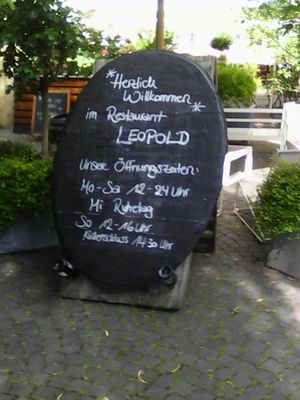 *Herzlich
Willkommen*
im Restaurant
LEOPOLD
Unsere Öffnungszeiten:
Mo-Sa 12-24 Uhr
Mi Ruhetag
So 12-16 Uhr
Küchenschluss 14:30 Uhr